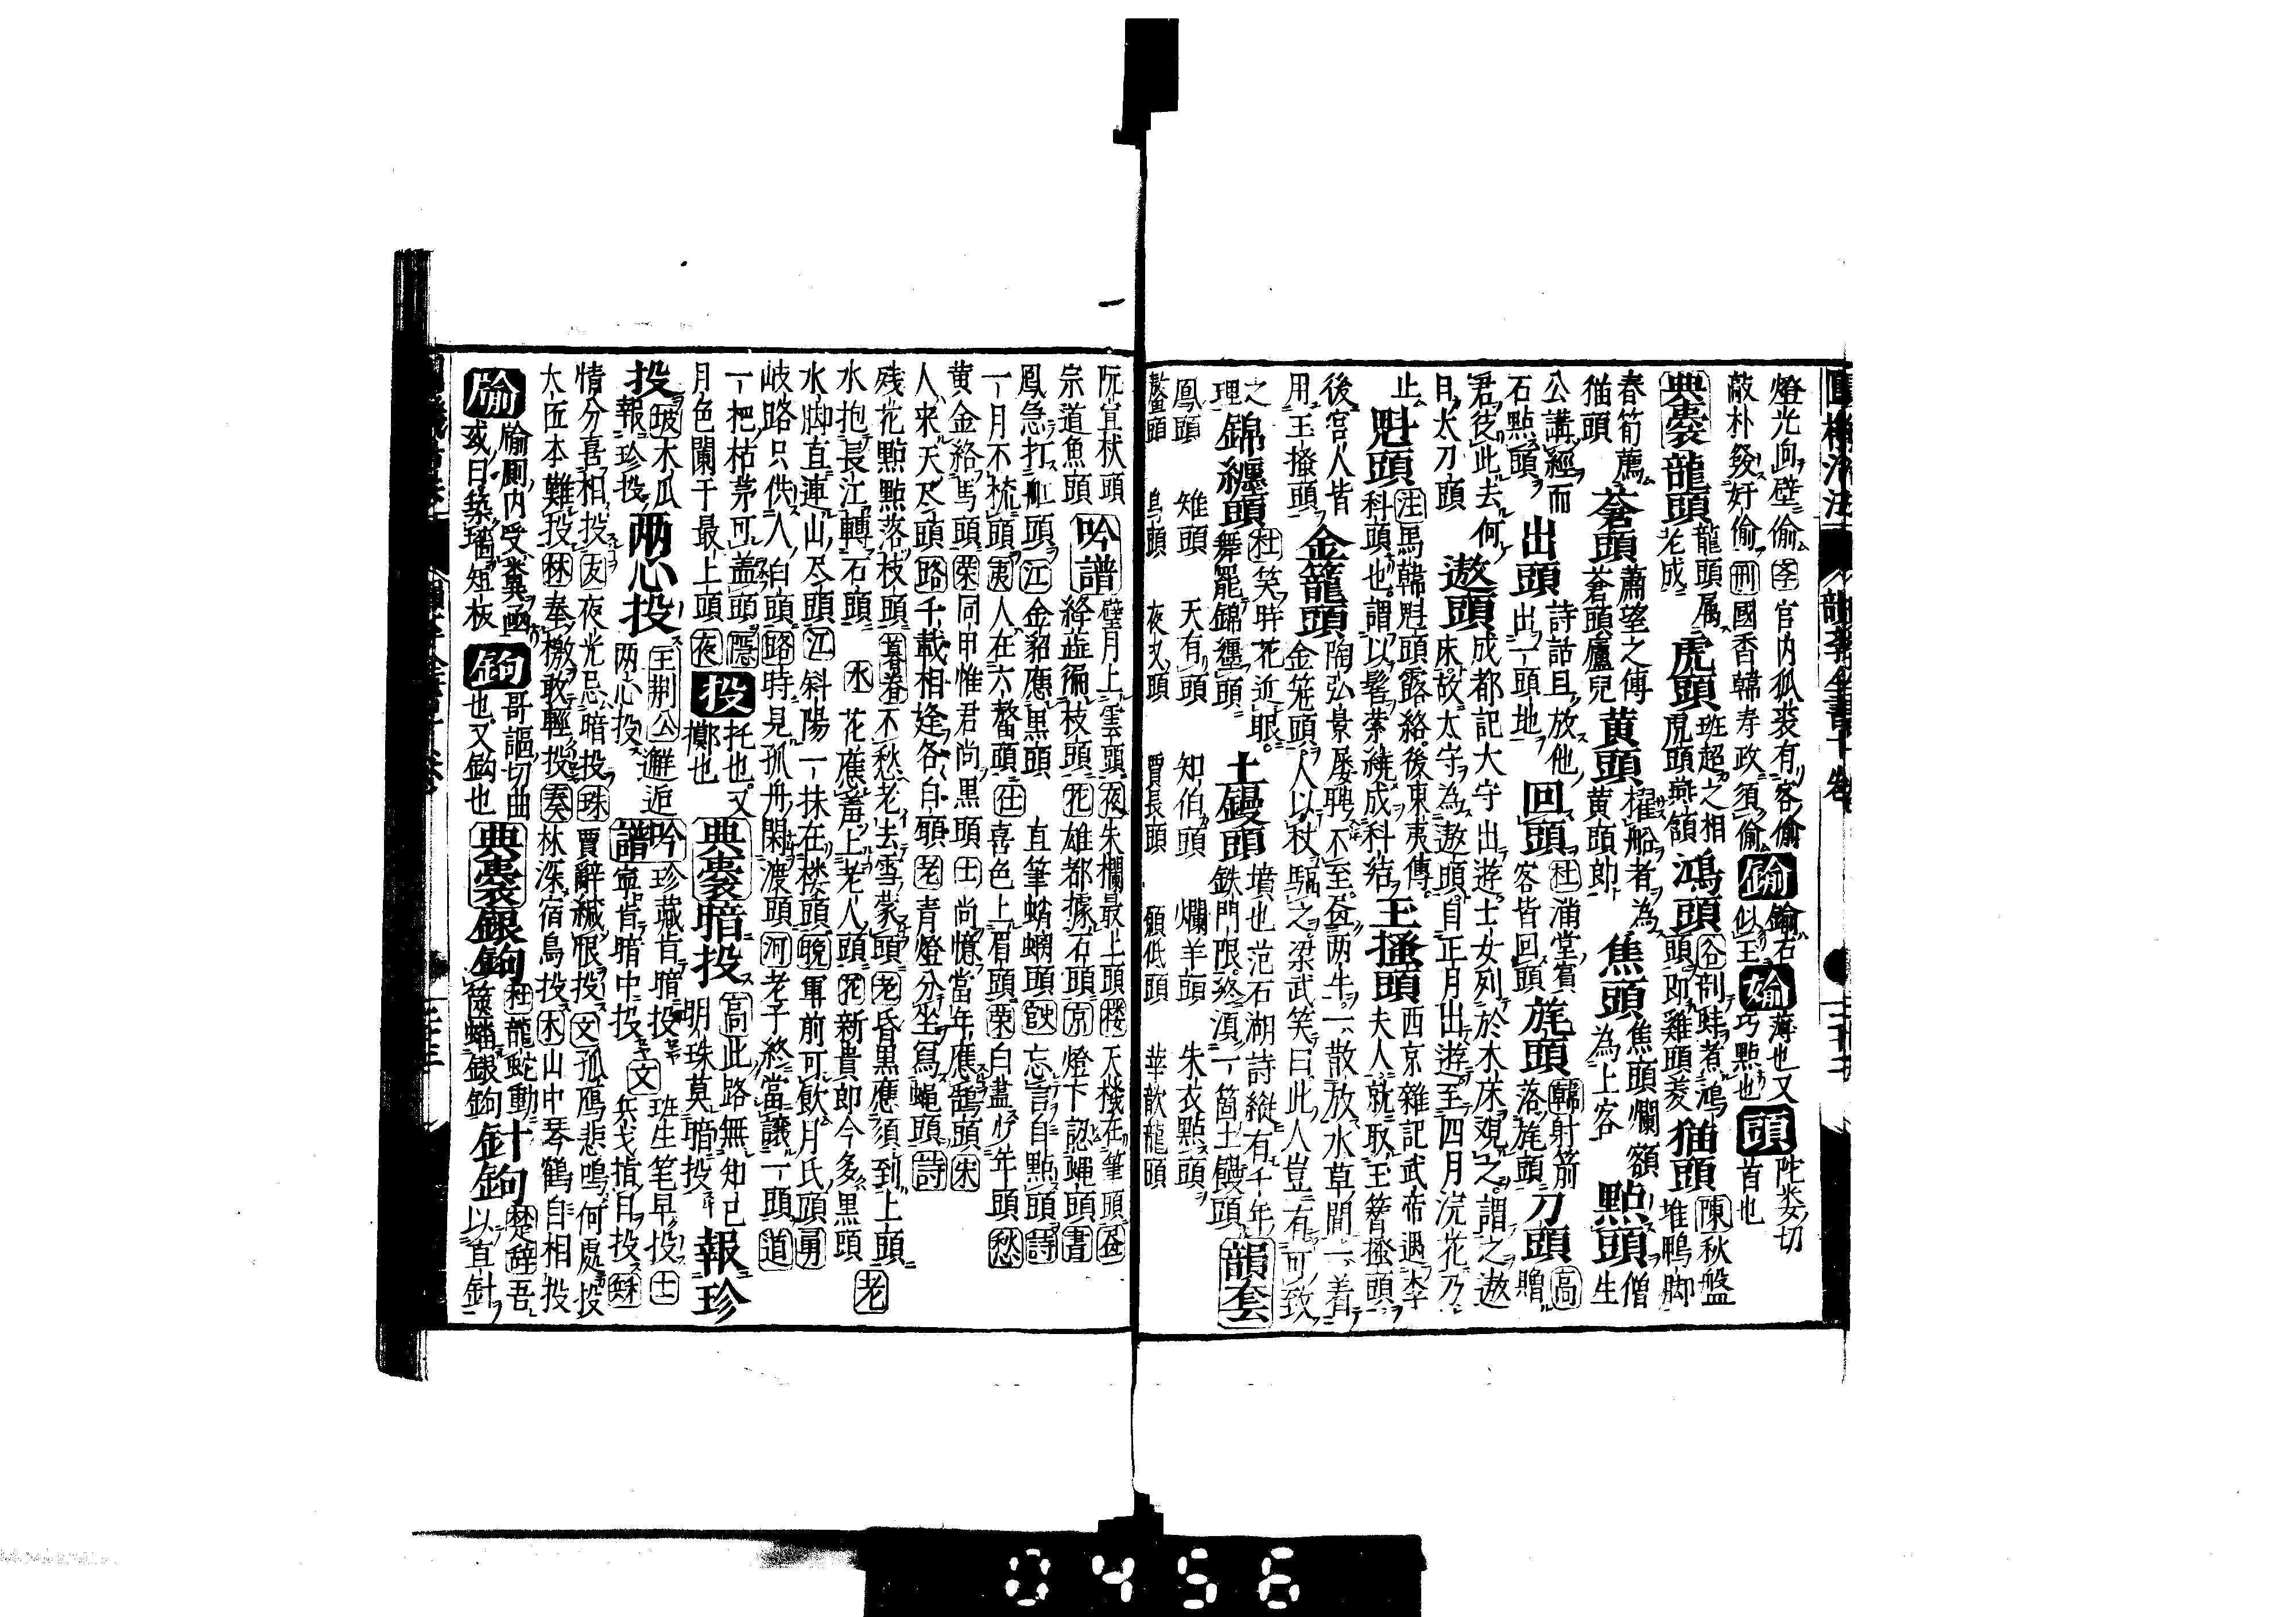 燈光向壁偷 客 官内狐裘有客偷
敲朴發奸偷 刑 國香韓寿政須偷 鍮 鍮石似玉 媮 薄也又巧黠也 頭 陀婁切首也
典裳 龍頭 龍頭属老成 虎頭 班超之相虎頭燕頷 鴻頭 谷 剖蚌煮鴻頭即雞頭菱 猫頭 陳 秋盤堆鴨脚
春筍薦猫頭 蒼頭 蕭望之傳蒼頭廬兒 黄頭 櫂船者為黄頭郎 焦頭 焦頭爛額為上客 點頭 僧生
公講經而石點頭 出頭 詩話且放他出一頭地 回頭 杜 滿堂賓客皆回頭 旄頭 韓 射箭落旄頭 刀頭 高 贈
君従此去何日大刀頭 遨頭 成都記大守出遊士女列於木床観之謂之遨床故太守為遨頭自正月出遊至四月浣花乃
止 魁頭 注 馬韓魁頭露絡後東夷傳科頭也謂以髻縈繞成科結 玉搔頭 西京雜記武帝過李夫人就取玉簪搔頭
後宮人皆用玉搔頭 金籠頭 陶弘景屡聘不至畫两牛一散放水草間一着金笼頭人以杖驅之梁武笑曰此人豈有可致
之理 錦纏頭 杜 笑時花近眼舞罷錦纏頭 土饅頭 墳也范石湖詩縦有千年鉄門限終湏一箇土饅頭 韻套
鳳頭 雉頭 天有頭 知伯頭 爛羊頭 朱衣點頭
鼇頭 烏頭 夜叉頭 賈長頭 顧低頭 華歆龍頭
阮宣杖頭 宗道魚頭 吟譜 璧月上雲頭 夜 朱欄最上頭 楼 天機在筆頭
絳蕋徧枝頭 花 雄都據石頭 京 燈下認蠅頭 書
鳳急打船頭 江 金貂應黒頭 直筆蛸螭頭 史 忘言自點頭 詩
一月不梳頭 夷 人在六鰲頭 仕 喜色上眉頭 荣 白盡少年頭 愁
黄金絡馬頭 荣 同甲惟君尚黒頭 士 尚憶當年應鵠頭 宋
人来天尽頭 路 千載相逢各白頭 老 青燈分坐写蠅頭 詩
残花點點落枝頭 暮春 不愁老去雪蒙頭 老 昏黒應須到上頭
水抱長江轉石頭 水 花應羞上老人頭 花 新貴即今多黒頭 老
水脚直連山尽頭 江 斜陽一抹在楼頭 晚 軍前可飲月氏頭 勇
岐路只供人白頭 路 時見孤舟閑渡頭 河 老子終當讓一頭 道
一把枯茅可盖頭 隱
月色闌干最上頭 夜 投 托也又擲也 典裳 暗投 高 此路無知己明珠莫暗投 報珍
投 玻 木瓜報珍投 两心投 王荆公 邂逅两心投 吟譜 珍藏肯暗投 文 班生笔早投 士
寧肯暗中投 兵戈指日投
情分喜相投 友 夜光忌暗投 珠 賈辭緘恨投 文 孤鴈悲鳴何處投
大匠本難投 林 奉檄敢輕投 奏 林深宿鳥投 木 山中琴鶴自相投
牏 牏厠内受糞函或曰築墻短板 鉤 哥謳切曲也又鈎也 典裳 銀鉤 杜 龍蛇動篋蟠銀鉤 針鉤 楚辞 吾以直針